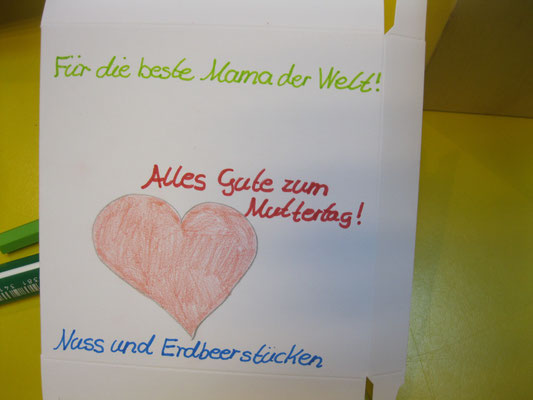 Für die beste Mama der Welt!
Alles Gute zum
Muttertag!
Nuss und Erdbeerstücken